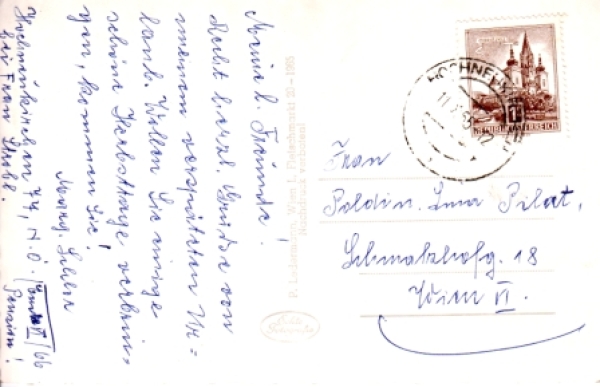 Meine l. Freunde!
Recht herzl. Grüße von
meinem verspäteten Ur=
laub. Wollen Sie einige
schöne Herbsttage verbrin-
gen, kommen Sie!
Hochneukirchen
bei Frau
Pension!
P. Ledermann, Wien I, Fleischmarkt 20 - 1965
Nachdruck verboten!
Echte
HOCHNEUK
REPUBLIK ÖSTERREICH
Frau
Poldin. Irma Pilat,
Schmalzhofg. 18
Wien VI.